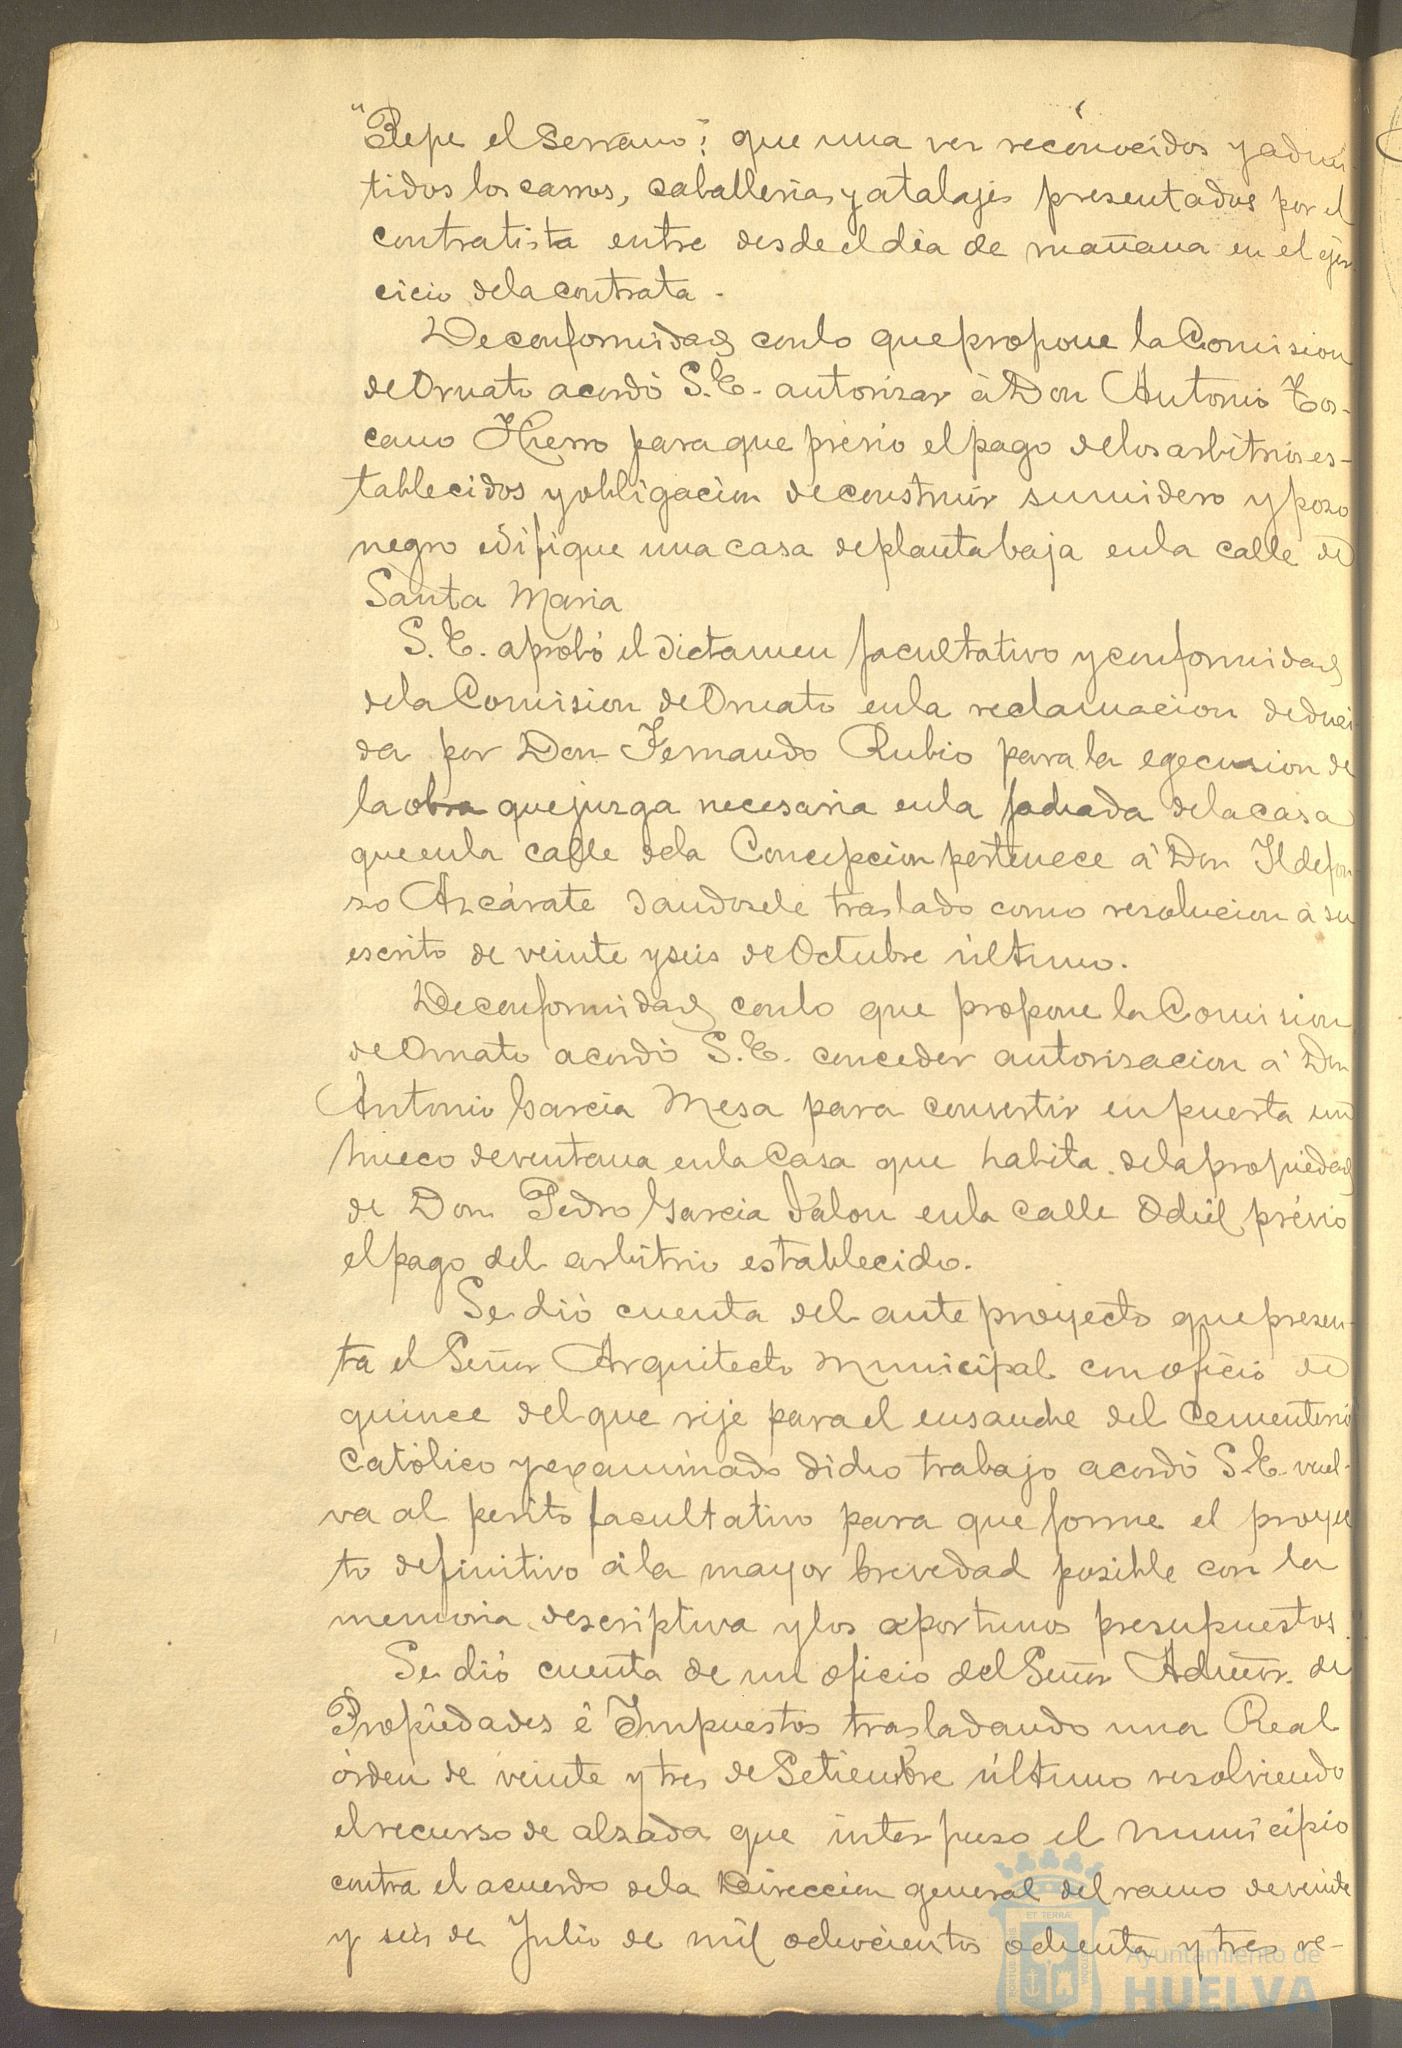 "Pepe el Serrano"; que una vez reconocidos y admi
tidos los carros, caballerias y atalajes presentados por el
contratista entre desde el dia de mañana en el ejer
cicio de la contrata.
De conformidad con lo que propone la Comision
de Ornato acordó S. E. autorizar á Don Antonio Tos-
cano Hierro para que prévio el pago de los arbitrios es-
tablecidos y obligacion de construir sumidero y pozo
negro edifique una casa de planta baja en la calle de
Santa Maria
S. E. aprobó el dictamen facultativo y conformidad
de la Comision de Ornato en la reclamacion deduci
da por Don Fernando Rubio para la egecusion de
la obra que juzga necesaria en la fachada de la casa
que en la calle de la Concepcion pertenece á Don Ildefon
so Azcárate dandosele traslado como resolucion á su
escrito de veinte y seis de Octubre último.
De conformidad con lo que propone la Comision
de Ornato acordó S. E. conceder autorizacion á Don
Antonio Garcia Mesa para convertir en puerta un
hueco de ventana en la Casa que habita de la propiedad
de Don Pedro Garcia Jalon en la calle Odiel prévio
el pago del arbitrio establecido.
Se dió cuenta del ante proyecto que presen-
ta el Señor Arquitecto Municipal con oficio de
quince del que rije para el ensanche del Cementerio
Católico y examinado dicho trabajo acordó S. E. vuel-
va al perito facultativo para que forme el proyec
to definitivo á la mayor brevedad posible con la
memoria descriptiva y los oportunos presupuestos.
Se dió cuenta de un oficio del Señor Admor. de
Propiedades é Impuestos trasladando una Real
órden de veinte y tres de Setiembre último resolviendo
el recurso de alzada que interpuso el Municipio
contra el acuerdo de la Direccion general del ramo de veinte
y seis de Julio de mil ochocientos ochenta y tres re-
Ayuntamiento de
HUELVA